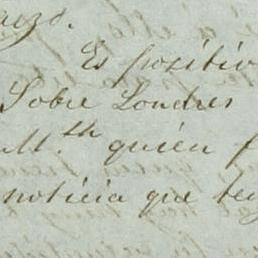 Es positivo
Sobre Londres
M.th quién
noticia que ten